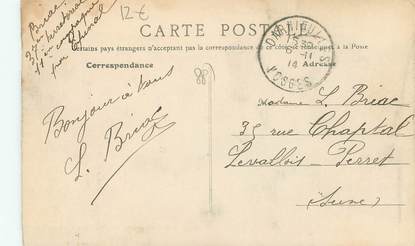 Briac
37e territorial
11e compagnie
par Épinal
12 €
CARTE POSTALE
Certains pays étrangers n'acceptent pas la correspondance de ce côté se renseigner à la Poste
Correspondance
Adresse
VOSGES
Bonjour à tous
L. Briac
Madame L. Briac
35 rue Chaptal
Levallois-Perret
(Seine)